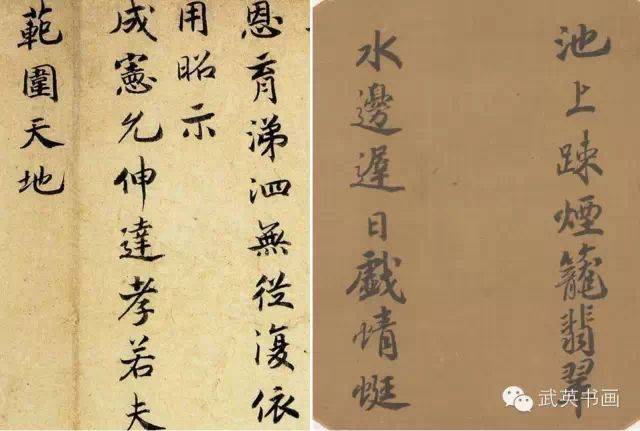 恩育涕泗無從復依
用昭示
成憲允伸達孝若夫
範圍天地
池上踈煙籠翡翠
水邊遲日戲蜻蜓
武英书画